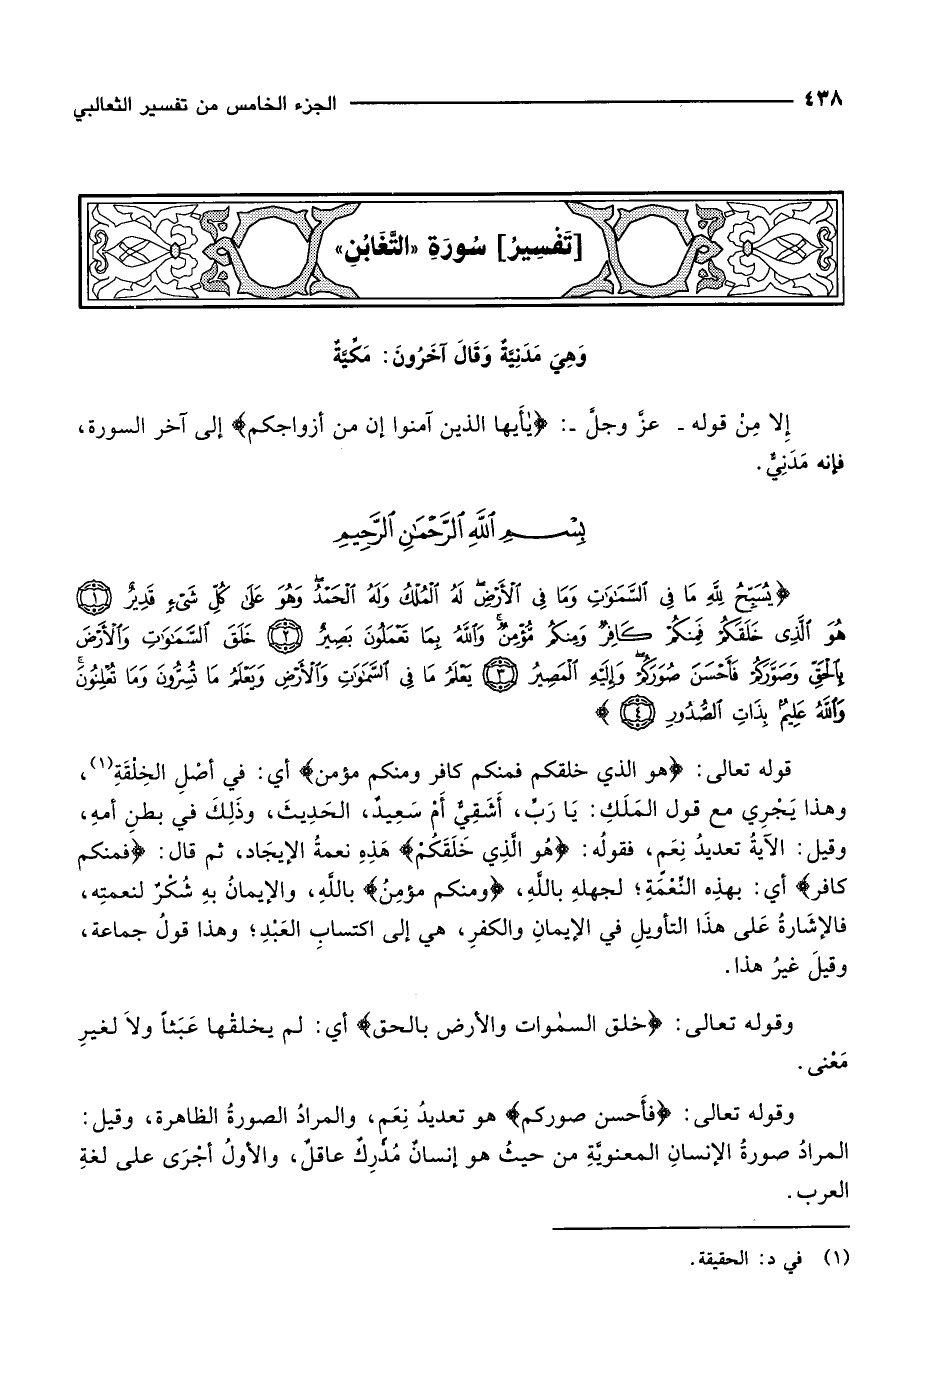 ٤٣٨ الجزء الخامس من تفسير الثعالبي
[تَفْسِيرُ] سُورَةِ «التَّغَابُنِ»
وَهِيَ مَدَنِيَّةٌ وَقَالَ آخَرُونَ: مَكِّيَّةٌ
إِلا مِنْ قوله ـ عزَّ وجلَّ ـ: ﴿يٰأيها الذين آمنوا إن من أزواجكم﴾ إلى آخر السورة،
فإنه مَدَنِيٌّ.
بِسْمِ ٱللَّهِ ٱلرَّحْمَٰنِ ٱلرَّحِيمِ
﴿يُسَبِّحُ لِلَّهِ مَا فِى ٱلسَّمَٰوَٰتِ وَمَا فِى ٱلْأَرْضِۖ لَهُ ٱلْمُلْكُ وَلَهُ ٱلْحَمْدُۖ وَهُوَ عَلَىٰ كُلِّ شَىْءٍ قَدِيرٌ ۝١
هُوَ ٱلَّذِى خَلَقَكُمْ فَمِنكُمْ كَافِرٌ وَمِنكُم مُّؤْمِنٌۚ وَٱللَّهُ بِمَا تَعْمَلُونَ بَصِيرٌ ۝٢ خَلَقَ ٱلسَّمَٰوَٰتِ وَٱلْأَرْضَ
بِٱلْحَقِّ وَصَوَّرَكُمْ فَأَحْسَنَ صُوَرَكُمْۖ وَإِلَيْهِ ٱلْمَصِيرُ ۝٣ يَعْلَمُ مَا فِى ٱلسَّمَٰوَٰتِ وَٱلْأَرْضِ وَيَعْلَمُ مَا تُسِرُّونَ وَمَا تُعْلِنُونَۚ
وَٱللَّهُ عَلِيمٌۢ بِذَاتِ ٱلصُّدُورِ ۝٤﴾
قوله تعالى: ﴿هو الذي خلقكم فمنكم كافر ومنكم مؤمن﴾ أي: في أصْلِ الخِلْقَةِ(١)،
وهذا يَجْرِي مع قول المَلَكِ: يَا رَبِّ، أَشَقِيٌّ أَمْ سَعِيدٌ، الحَدِيثَ، وذَلِكَ في بطنِ أمه،
وقيل: الآيةُ تعديدُ نِعَمٍ، فقولُه: ﴿هُو الَّذِي خَلَقَكُمْ﴾ هَذِهِ نعمةُ الإيجَاد، ثم قال: ﴿فمنكم
كافر﴾ أي: بهذِه النِّعْمَةِ؛ لجهلهِ باللَّهِ، ﴿ومنكم مؤمنٌ﴾ باللَّهِ، والإيمانُ بهِ شُكْرٌ لنعمتِه،
فالإشَارةُ عَلى هذَا التأويلِ في الإيمانِ والكفرِ، هي إلى اكتسابِ العَبْدِ؛ وهذا قولُ جماعة،
وقيلَ غيرُ هذا.
وقوله تعالى: ﴿خلق السمٰوات والأرض بالحق﴾ أي: لم يخلقْها عَبَثاً ولاَ لغيرِ
مَعْنى.
وقوله تعالى: ﴿فأَحسن صوركم﴾ هو تعديدُ نِعَمٍ، والمرادُ الصورةُ الظاهرة، وقيل:
المرادُ صورةُ الإنسانِ المعنويَّةِ من حيثُ هو إنسانٌ مُدْرِكٌ عاقلٌ، والأولُ أجْرَى على لغةِ
العرب.
(١) في د: الحقيقة.